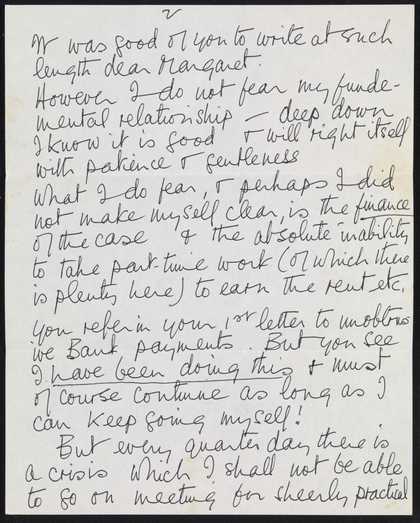 2
It was good of you to write at such
length dear Margaret.
However I do not fear my funde-
mental relationship – deep down
I know it is good & will right itself
with patience & gentleness
What I do fear, & perhaps I did
not make myself clear, is the finance
of the case & the absolute inability
to take part time work (of which there
is plenty here) to earn the rent etc.
You refer in your 1st letter to unobtrus
ive Bank payments. But you see
I have been doing this & must
of course continue as long as I
can keep going myself!
But every quarter day there is
a crisis which I shall not be able
to go on meeting for sheerly practical